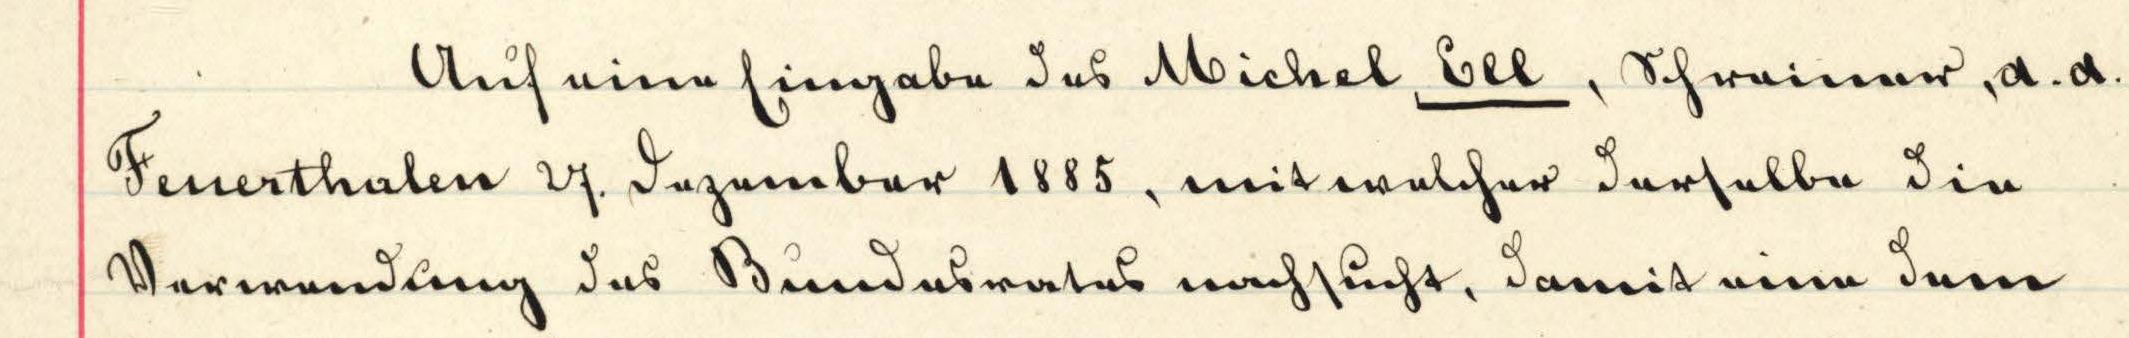 Auf eine Eingabe des Michel Ell, Schreiner, d. d.
Feuerthalen 27. Dezember 1885, mit welcher derselbe die
Verwendung des Bundesrates nachsucht, damit eine dem